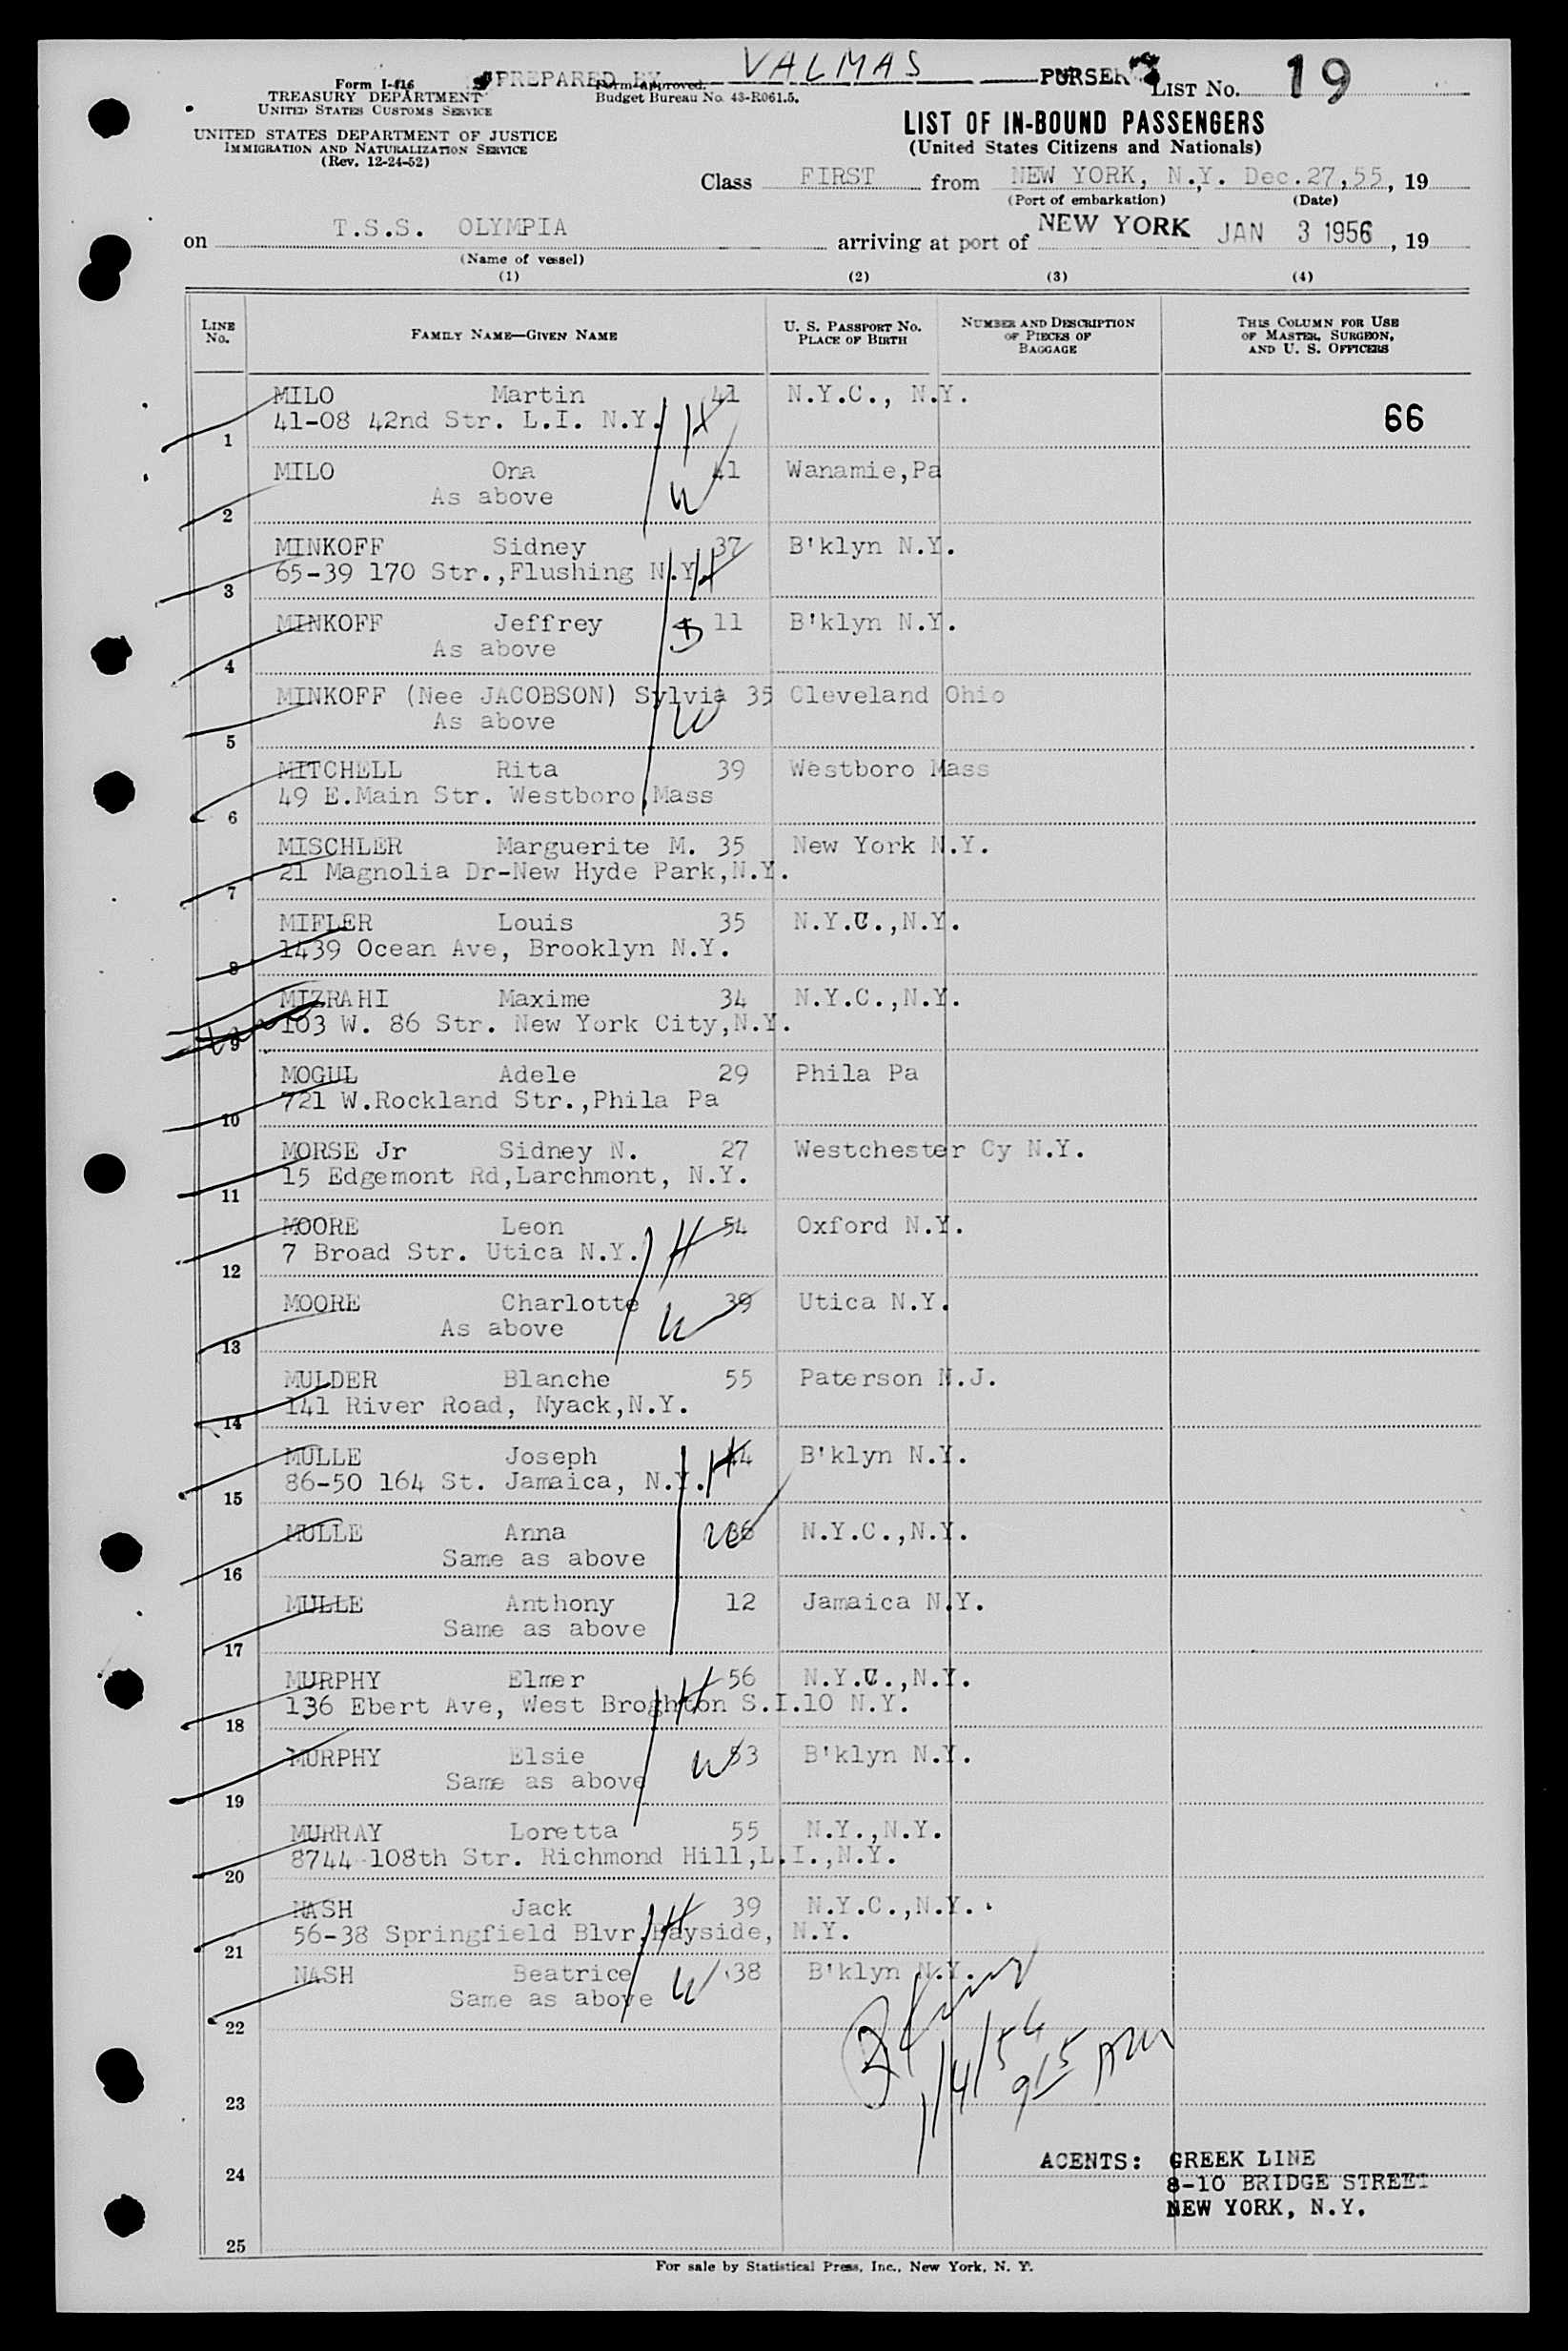 PREPARED BY VALMAS PURSER
Form I-416
TREASURY DEPARTMENT
UNITED STATES CUSTOMS SERVICE
Form approved.
Budget Bureau No. 43-R061.5.
LIST No. 19
UNITED STATES DEPARTMENT OF JUSTICE
IMMIGRATION AND NATURALIZATION SERVICE
(Rev. 12-24-52)
LIST OF IN-BOUND PASSENGERS
(United States Citizens and Nationals)
Class FIRST from NEW YORK, N.Y. Dec.27,55, 19
(Port of embarkation) (Date)
on T.S.S. OLYMPIA arriving at port of NEW YORK JAN 3 1956, 19
(Name of vessel)
(1) (2) (3) (4)
LINE No. FAMILY NAME—GIVEN NAME U. S. PASSPORT No. PLACE OF BIRTH NUMBER AND DESCRIPTION OF PIECES OF BAGGAGE THIS COLUMN FOR USE OF MASTER, SURGEON, AND U. S. OFFICERS
MILO Martin 41 N.Y.C., N.Y.
1 41-08 42nd Str. L.I. N.Y. H 66
MILO Ona 41 Wanamie,Pa
2 As above W
MINKOFF Sidney 37 B'klyn N.Y.
3 65-39 170 Str.,Flushing N.Y. H
MINKOFF Jeffrey 11 B'klyn N.Y.
4 As above
MINKOFF (Nee JACOBSON) Sylvia 35 Cleveland Ohio
5 As above W
MITCHELL Rita 39 Westboro Mass
6 49 E.Main Str. Westboro,Mass
MISCHLER Marguerite M. 35 New York N.Y.
7 21 Magnolia Dr-New Hyde Park,N.Y.
MIFLER Louis 35 N.Y.C.,N.Y.
8 1439 Ocean Ave, Brooklyn N.Y.
MIZRAHI Maxime 34 N.Y.C.,N.Y.
9 103 W. 86 Str. New York City,N.Y.
MOGUL Adele 29 Phila Pa
10 721 W.Rockland Str.,Phila Pa
MORSE Jr Sidney N. 27 Westchester Cy N.Y.
11 15 Edgemont Rd,Larchmont, N.Y.
MOORE Leon H 54 Oxford N.Y.
12 7 Broad Str. Utica N.Y.
MOORE Charlotte 39 Utica N.Y.
13 As above W
MULDER Blanche 55 Paterson N.J.
14 141 River Road, Nyack,N.Y.
MULLE Joseph H 44 B'klyn N.Y.
15 86-50 164 St. Jamaica, N.Y.
MULLE Anna W 36 N.Y.C.,N.Y.
16 Same as above
MULLE Anthony 12 Jamaica N.Y.
17 Same as above
MURPHY Elmer H 56 N.Y.C.,N.Y.
18 136 Ebert Ave, West Broghton S.I.10 N.Y.
MURPHY Elsie W 53 B'klyn N.Y.
19 Same as above
MURRAY Loretta 55 N.Y.,N.Y.
20 8744 108th Str. Richmond Hill,L.I.,N.Y.
NASH Jack H 39 N.Y.C.,N.Y.
21 56-38 Springfield Blvr,Bayside, N.Y.
NASH Beatrice W 38 B'klyn N.Y.
22 Same as above
1/4/56
915 AM
23
24
AGENTS: GREEK LINE
8-10 BRIDGE STREET
NEW YORK, N.Y.
25
For sale by Statistical Press, Inc., New York, N. Y.